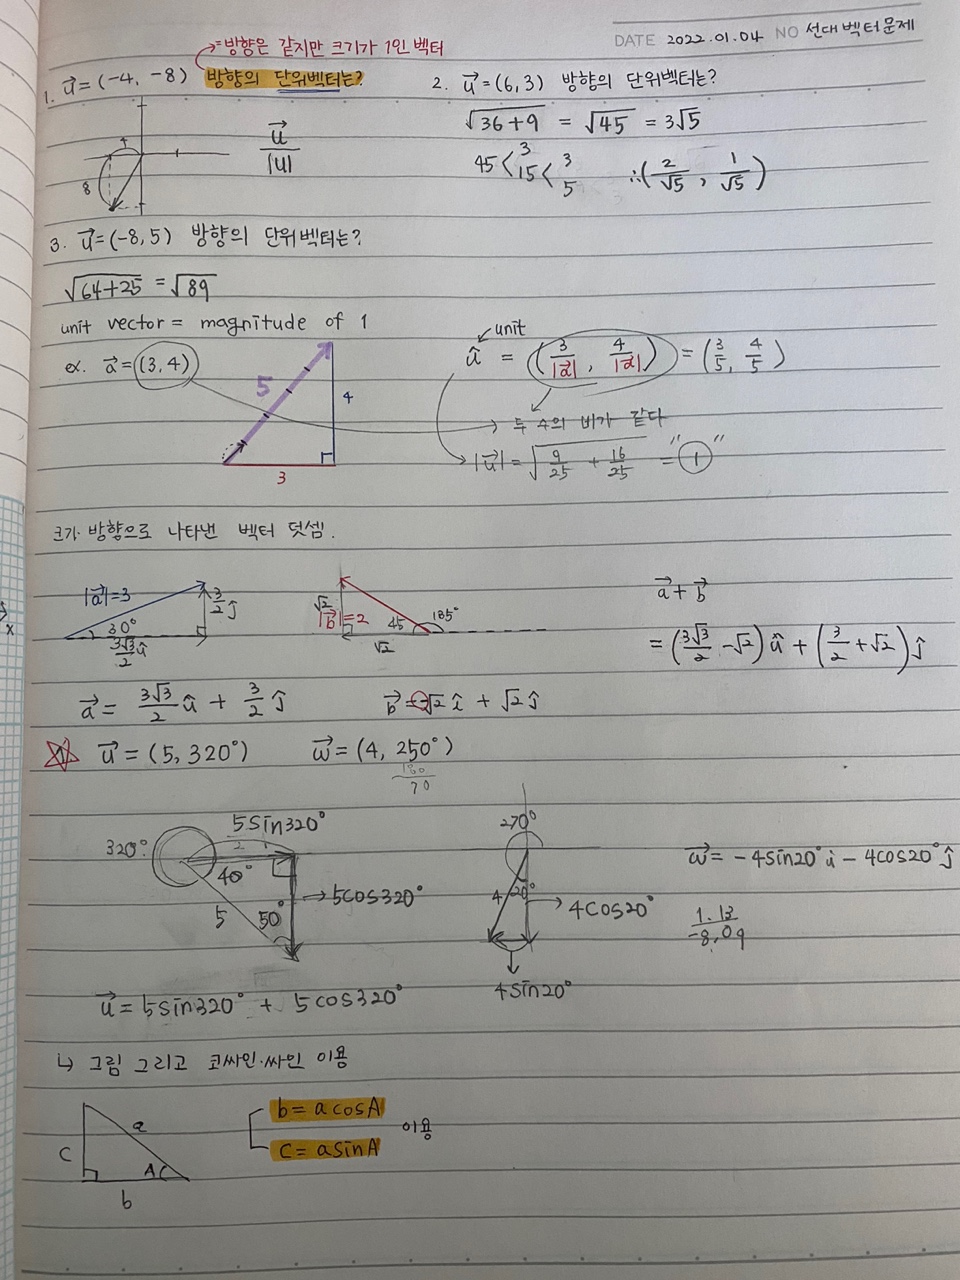 DATE 2022.01.04 NO 선대 벡터 문제
⇒방향은 같지만 크기가 1인 벡터
1. u⃗ = (-4, -8) 방향의 단위벡터는?
4
8
u⃗/|u|
2. u⃗ = (6,3) 방향의 단위벡터는?
√36+9 = √45 = 3√5
45 < 3 15 < 3 5
∴(2/√5, 1/√5)
3. u⃗ = (-8,5) 방향의 단위벡터는?
√64+25 = √89
unit vector = magnitude of 1
ex. a⃗ = (3,4)
5
4
3
unit
û = (3/|a⃗|, 4/|a⃗|) = (3/5, 4/5)
→ 두 수의 비가 같다
|u⃗| = √9/25 + 16/25 = "1"
크기·방향으로 나타낸 벡터 덧셈.
|a⃗|=3
3/2 ĵ
30°
3√3/2 û
√2
|b⃗|=2
45
135°
√2
a⃗ + b⃗
= (3√3/2 - √2) û + (3/2 + √2) ĵ
a⃗ = 3√3/2 û + 3/2 ĵ
b⃗ = -√2 î + √2 ĵ
u⃗ = (5, 320°)
w⃗ = (4, 250°)
180
70
320°
5sin320°
40°
5
50°
→ 5cos320°
270°
4
20°
→ 4cos20°
4sin20°
w⃗ = -4sin20° i - 4cos20° ĵ
1.13
-8.09
u⃗ = 5sin320° + 5cos320°
↳ 그림 그리고 코싸인·싸인 이용
a
c
A
b
b = a cosA
c = asinA
이용
x